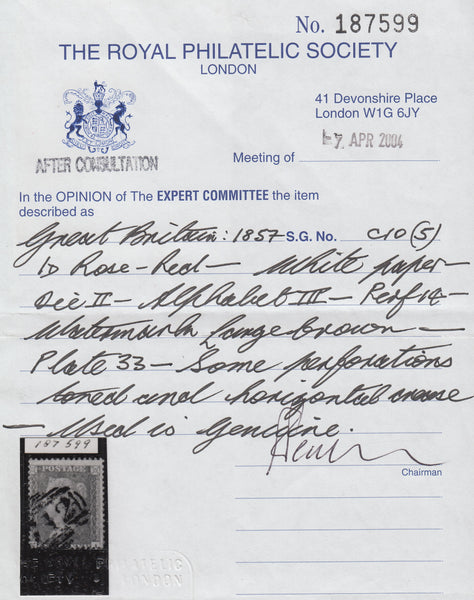 No. 187599
THE ROYAL PHILATELIC SOCIETY
LONDON
41 Devonshire Place
London W1G 6JY
AFTER CONSULTATION
7 APR 2004
Meeting of
In the OPINION of The EXPERT COMMITTEE the item
described as
Great Britain: 1857 S.G. No. C10 (5)
1d Rose-Red - White paper -
Die II - Alphabet III - Perf 14 -
Watermark Large Crown -
Plate 33 - Some perforations
toned and horizontal crease
- Used is genuine.
Chairman
187599
POSTAGE
PHILATELIC
LONDON